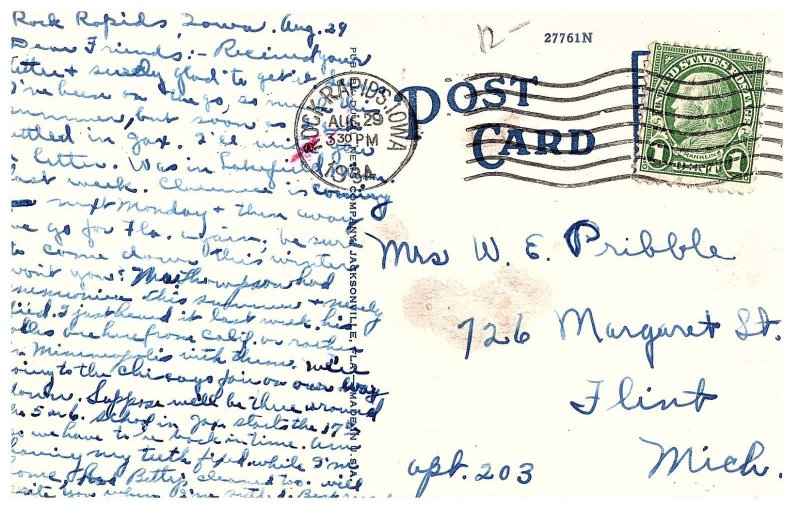 Rock Rapids, Iowa. Aug. 29
Dear Friends:- Received your
letter & surely glad to get it.
I've been on the go, so much
summer, but soon as
settled in Jax. I'll write you
a letter. Was in Lakefield
last week. Clarence is coming
next Monday & then away
we go for Fla. again, be sure
to come down this winter
won't you? Mr. Thompson had
pneumonia this summer & nearly
died. I just heard it last week. his
folks are here from Calif. or rather
in Minneapolis with them. We're
going to the Chicago fair on our way
down. Suppose we'll be there around
the 5 or 6. School in Jax starts the 17th
so we have to be back in time. Am
having my teeth fixed while I'm
home, had Betty's cleaned too. will
write you when I'm settled. Best
COMPANY, JACKSONVILLE, FLA. MADE IN U.S.A.
ROCK RAPIDS, IOWA
AUG 29
3 30 PM
1934
12-
27761N
POST
CARD
UNITED STATES POSTAGE
FRANKLIN
1 CENT 1
Mrs W. E. Pribble
726 Margaret St.
Flint
Mich.
apt. 203